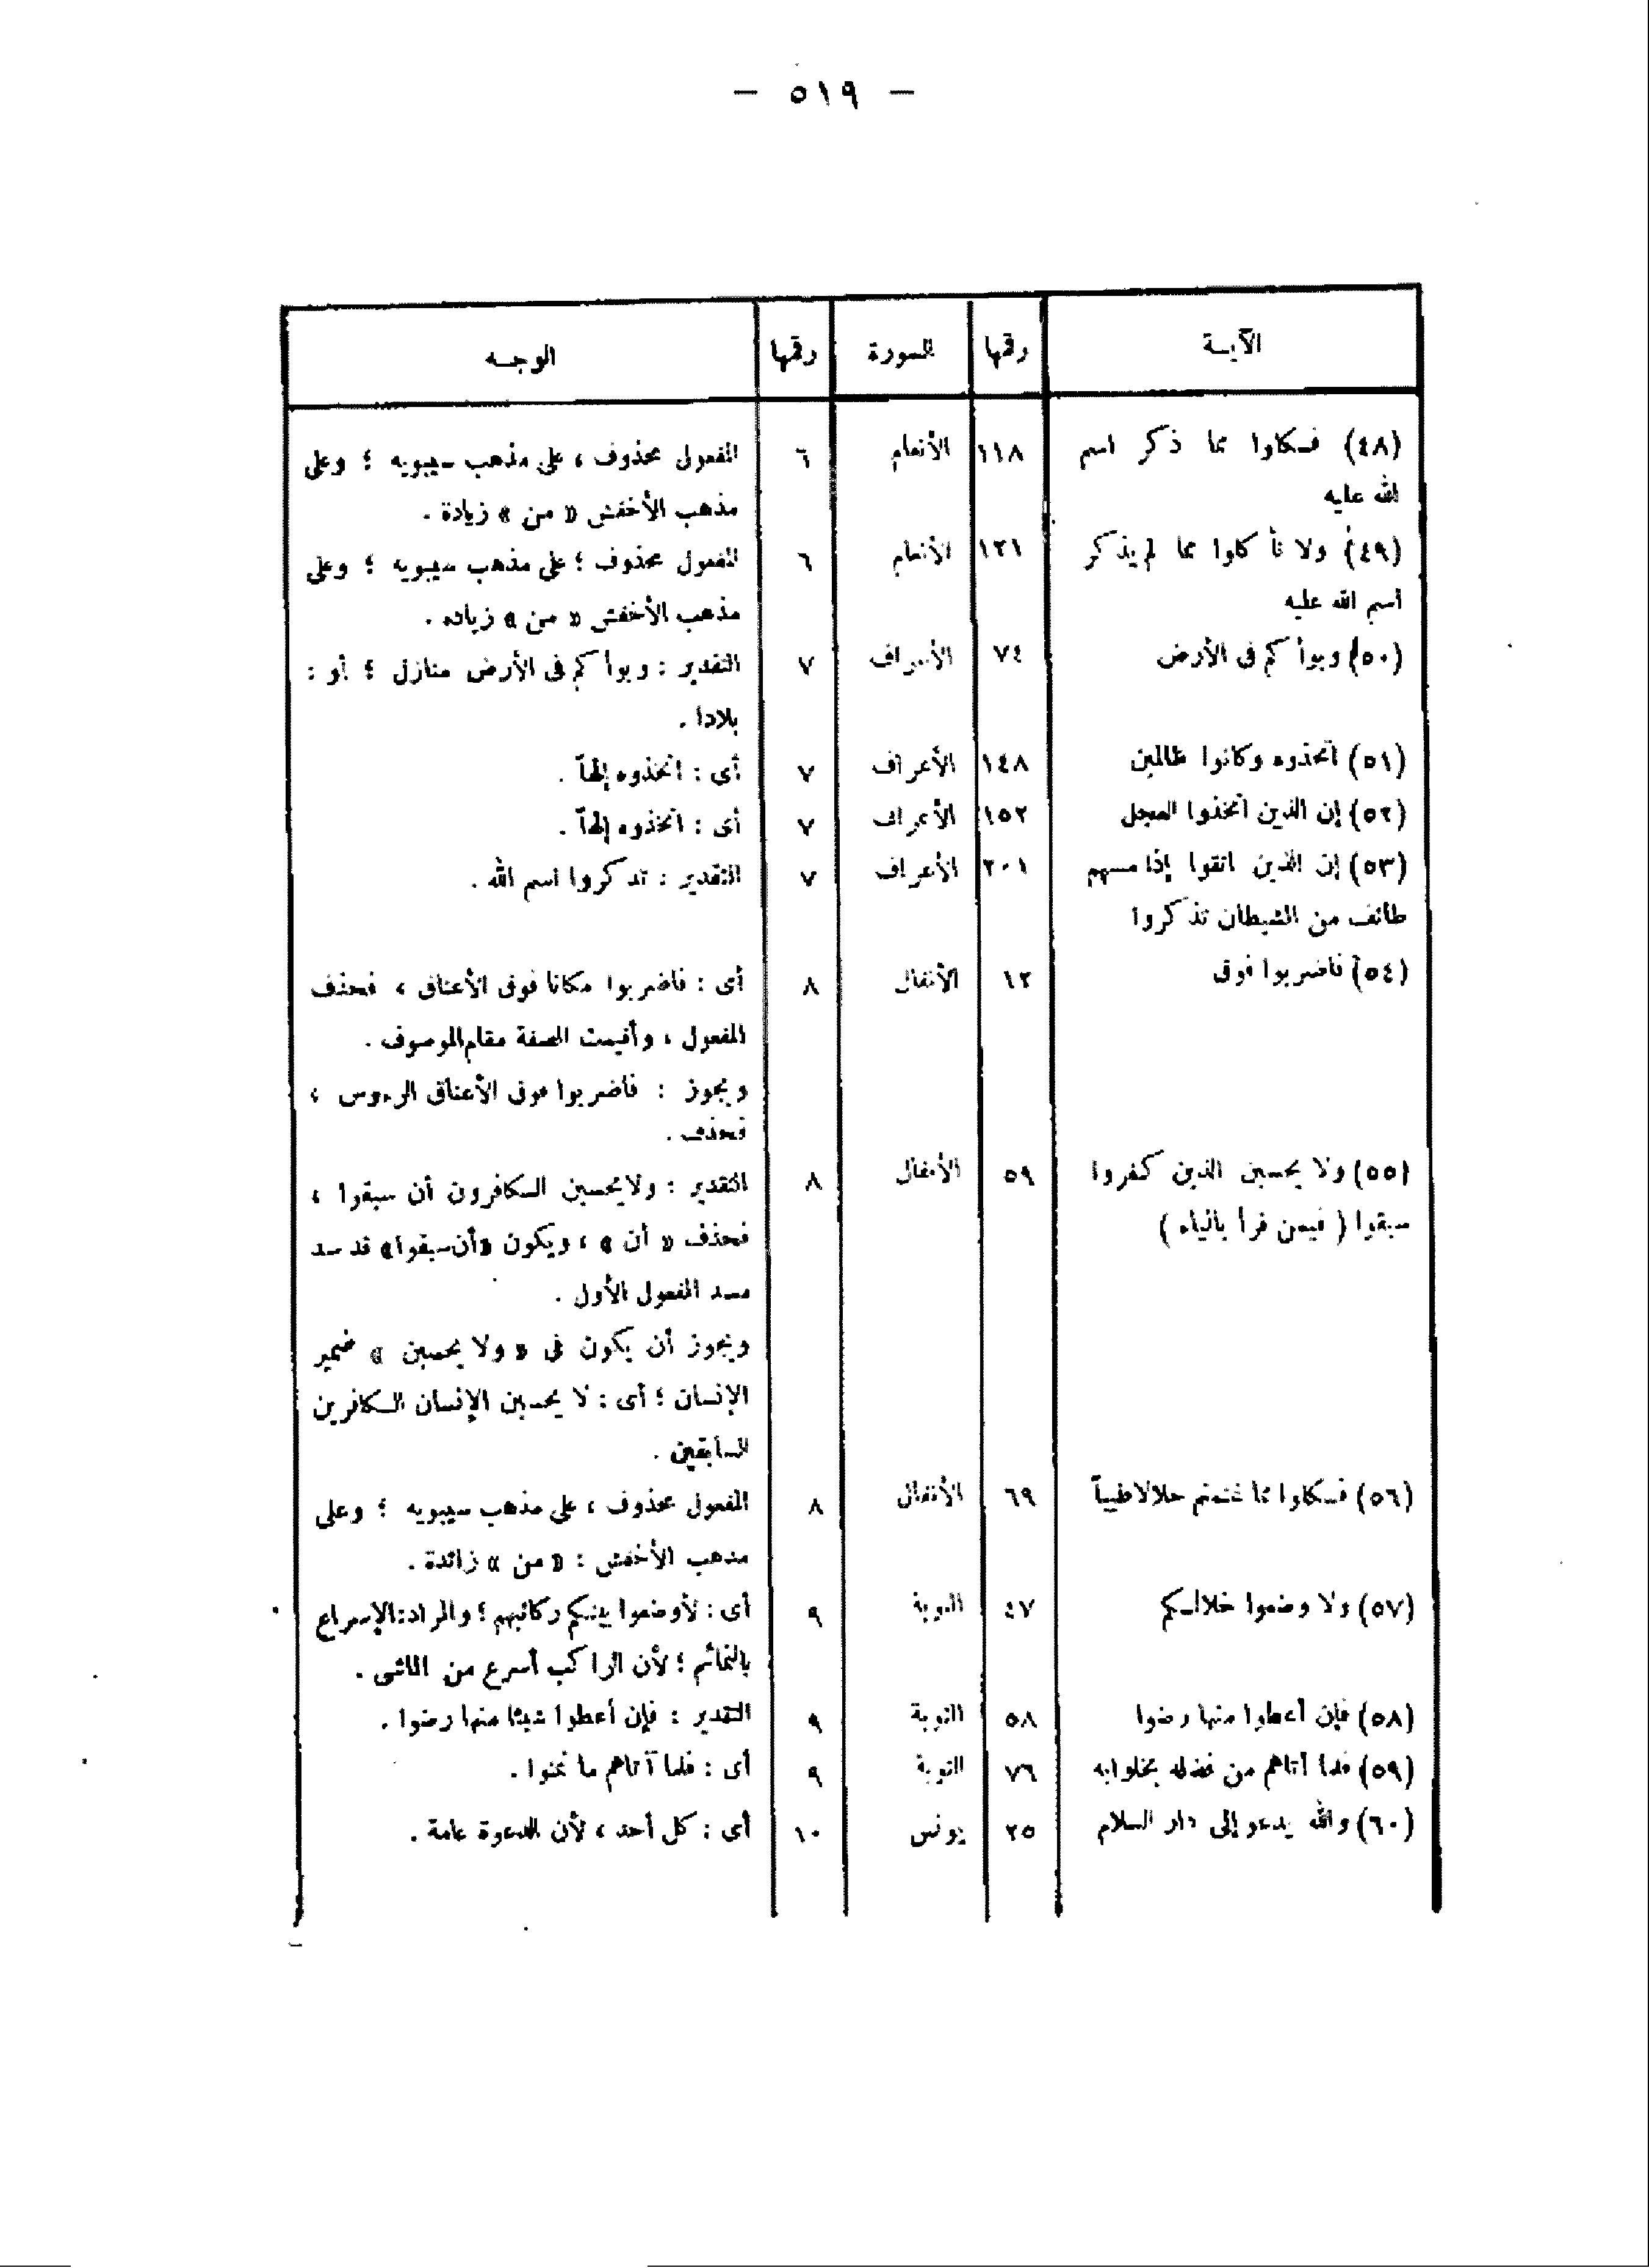 — ٥١٩ —
الآيـة رقمها السورة رقمها الوجـه
(٤٨) فـكلوا مما ذكر اسم ١١٨ الأنعام ٦ المفعول محذوف ، على مذهب سيبويه ؛ وعلى
الله عليه مذهب الأخفش « من » زيادة .
(٤٩) ولا تأكلوا مما لم يذكر ١٢١ الأنعام ٦ المفعول محذوف ؛ على مذهب سيبويه ؛ وعلى
اسم الله عليه مذهب الأخفش « من » زيادة .
(٥٠) وبوأ كم فى الأرض ٧٤ الأعراف ٧ التقدير : وبوأ كم فى الأرض منازل ؛ أو :
بلادا .
(٥١) اتخذوه وكانوا ظالمين ١٤٨ الأعراف ٧ أى : اتخذوه إلهاً .
(٥٢) إن الذين اتخذوا العجل ١٥٢ الأعراف ٧ أى : اتخذوه إلهاً .
(٥٣) إن الذين اتقوا إذا مسهم ٢٠١ الأعراف ٧ التقدير : تذكروا اسم الله .
طائف من الشيطان تذكروا
(٥٤) فاضربوا فوق ١٢ الأنفال ٨ أى : فاضربوا مكانا فوق الأعناق ، فحذف
المفعول ، وأقيمت الصفة مقام الموصوف .
ويجوز : فاضربوا فوق الأعناق الرءوس ،
فحذف .
(٥٥) ولا يحسبن الذين كفروا ٥٩ الأنفال ٨ التقدير : ولا يحسبن الـكافرون أن سبقوا ،
سبقوا ( فيمن قرأ بالياء ) فحذف « أن » ، ويكون «أن سبقوا» قد سد
مسد المفعول الأول .
ويجوز أن يكون فى « ولا يحسبن » ضمير
الإنسان ؛ أى : لا يحسبن الإنسان الـكافرين
السابقين .
(٥٦) فـكلوا مما غنمتم حلالا طيباً ٦٩ الأنفال ٨ المفعول محذوف ، على مذهب سيبويه ؛ وعلى
مذهب الأخفش : « من » زائدة .
(٥٧) ولا وضعوا خلالـكم ٤٧ التوبة ٩ أى : لأوضعوا بينـكم ركائبهم ؛ والمراد : الإسراع
بالنمائم ؛ لأن الراكب أسرع من الماشى .
(٥٨) فإن أعطوا منها رضوا ٥٨ التوبة ٩ التقدير : فإن أعطوا شيئا منها رضوا .
(٥٩) فلما آتاهم من فضله بخلوا به ٧٦ التوبة ٩ أى : فلما آتاهم ما تمنوا .
(٦٠) والله يدعو إلى دار السلام ٢٥ يونس ١٠ أى : كل أحد ، لأن الدعوة عامة .